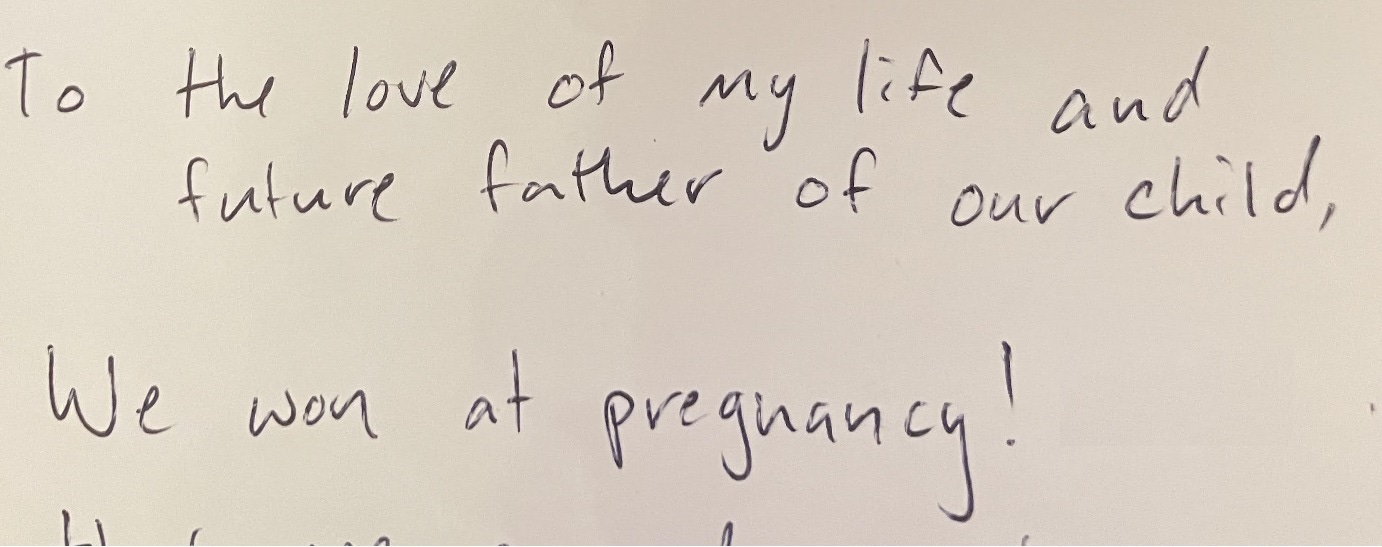 To the love of my life and
future father of our child,
We won at pregnancy!